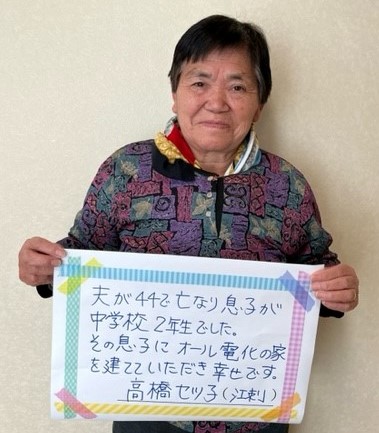 夫が44で亡なり息子が
中学校2年生でした。
その息子にオール電化の家
を建てていただき幸せです。
高橋セツ子(江刺)